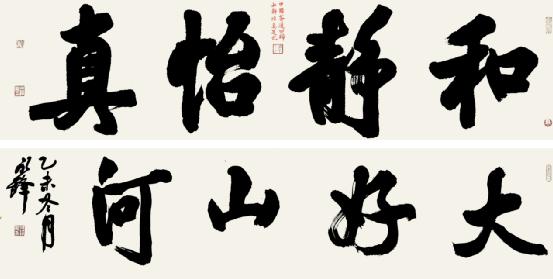 和静怡真
大好山河
乙未冬月